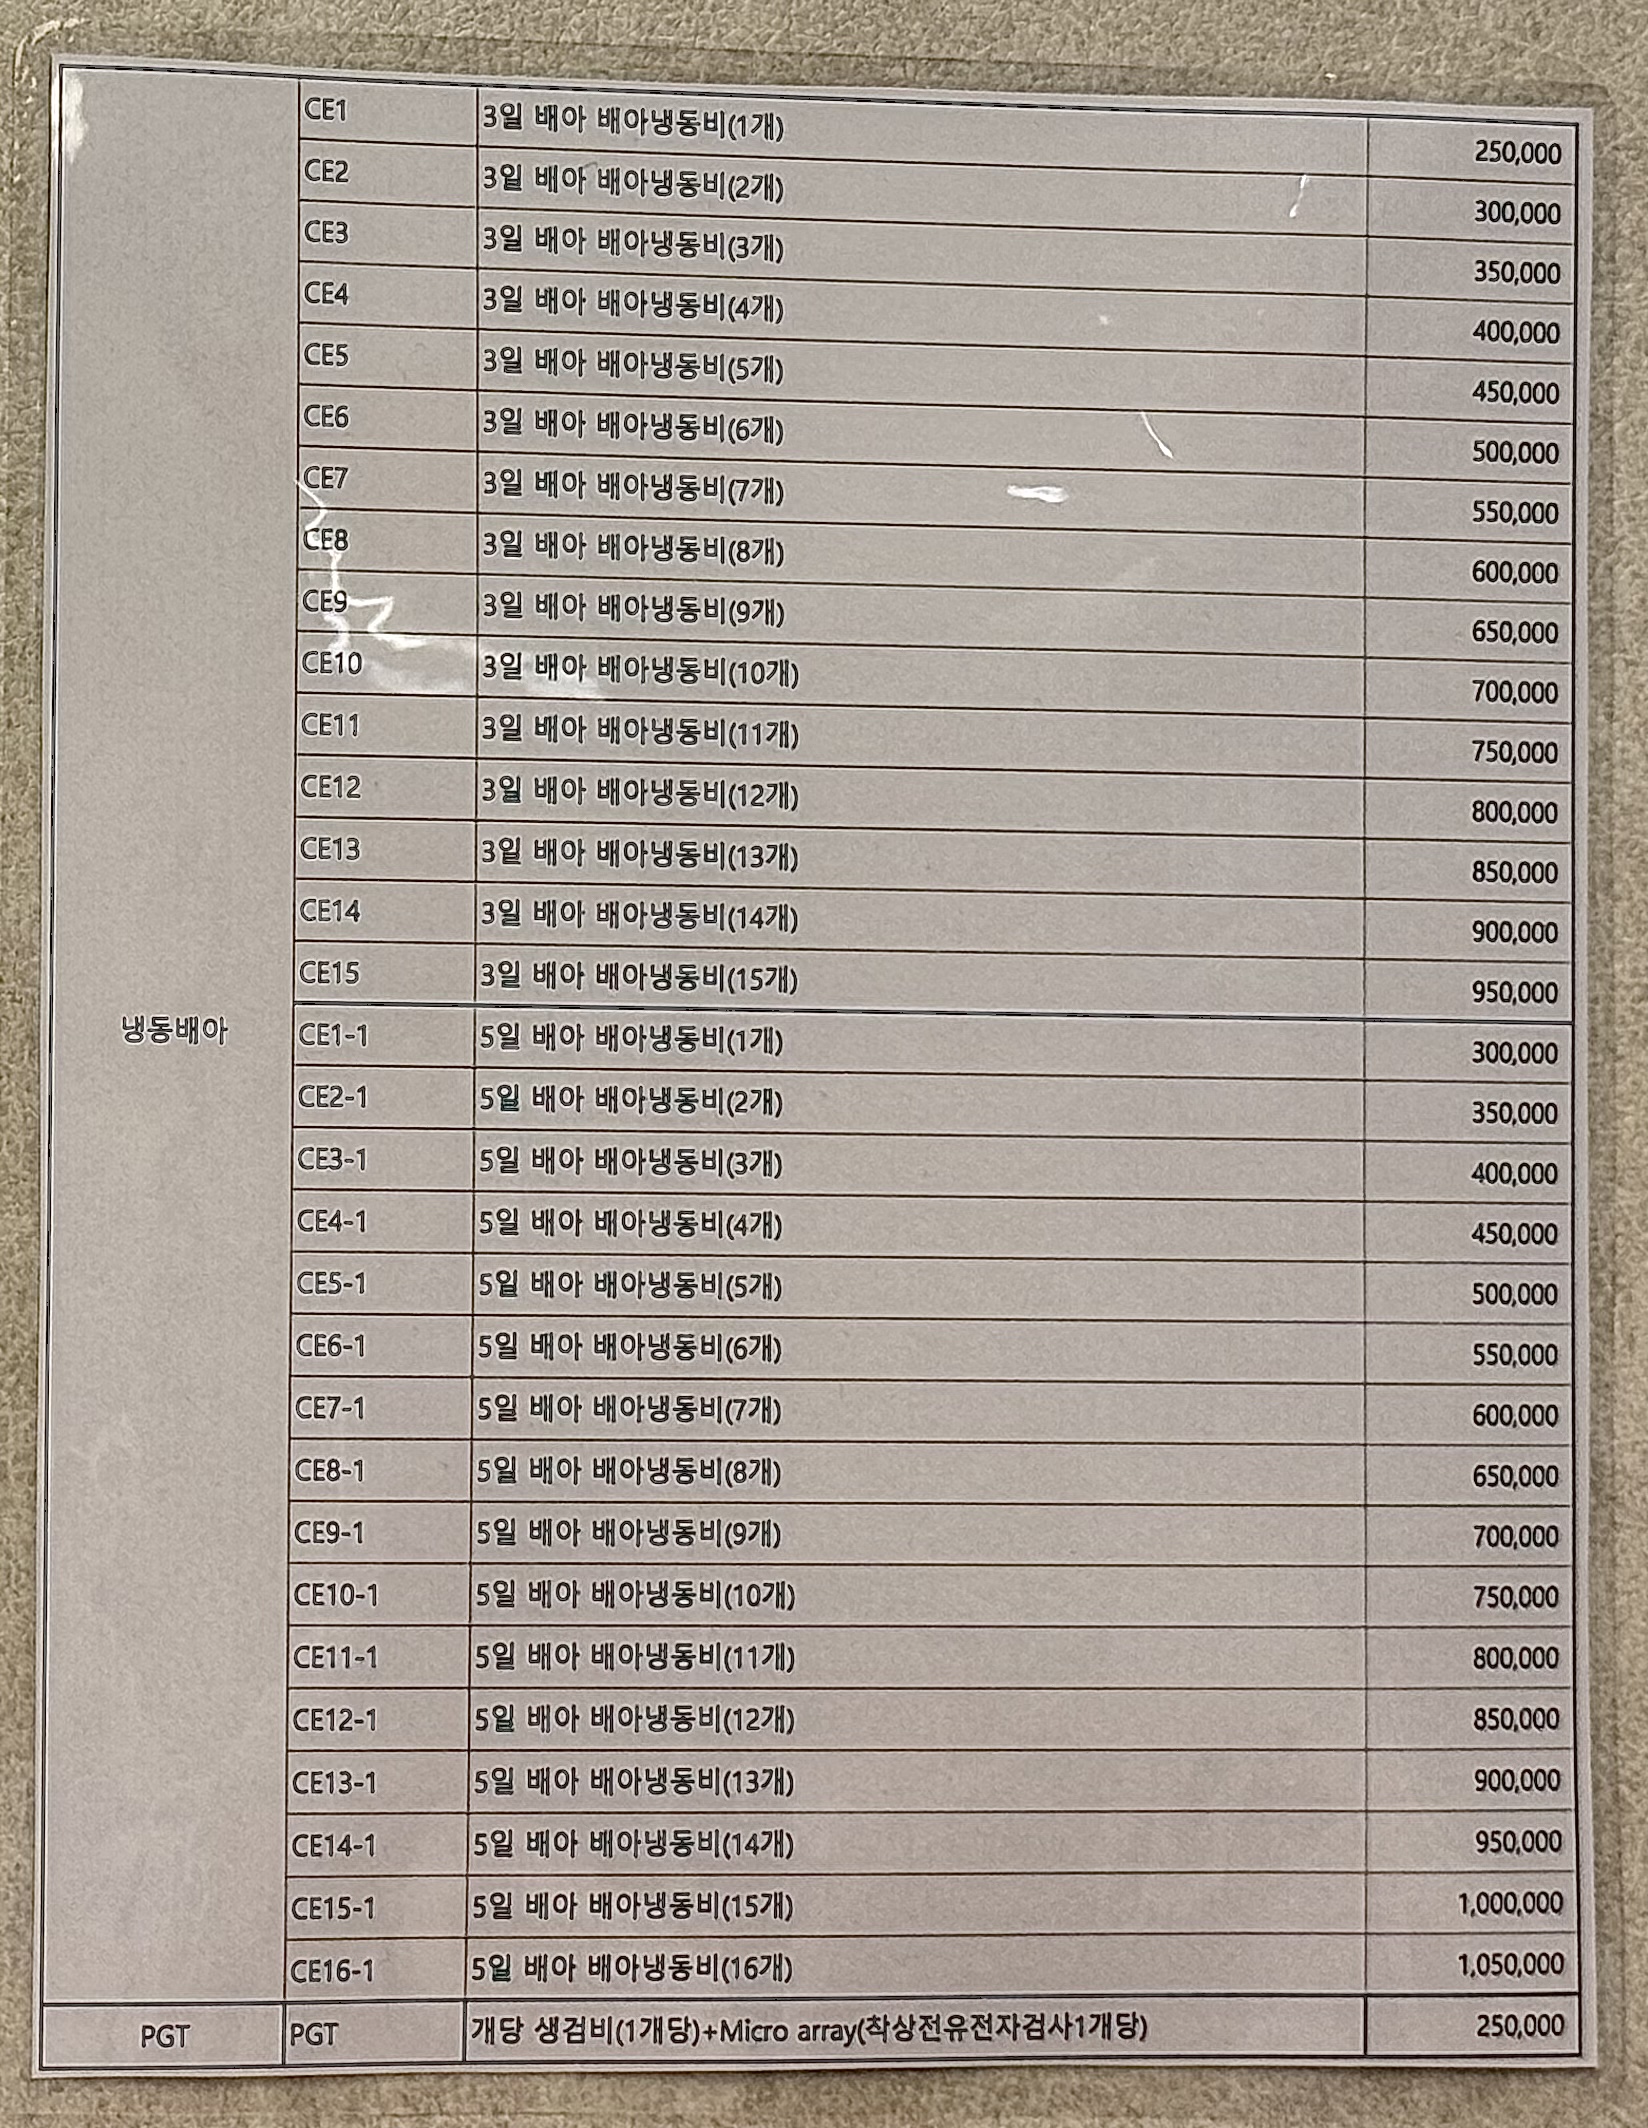 CE1 3일 배아 배아냉동비(1개) 250,000
CE2 3일 배아 배아냉동비(2개) 300,000
CE3 3일 배아 배아냉동비(3개) 350,000
CE4 3일 배아 배아냉동비(4개) 400,000
CE5 3일 배아 배아냉동비(5개) 450,000
CE6 3일 배아 배아냉동비(6개) 500,000
CE7 3일 배아 배아냉동비(7개) 550,000
CE8 3일 배아 배아냉동비(8개) 600,000
CE9 3일 배아 배아냉동비(9개) 650,000
CE10 3일 배아 배아냉동비(10개) 700,000
CE11 3일 배아 배아냉동비(11개) 750,000
CE12 3일 배아 배아냉동비(12개) 800,000
CE13 3일 배아 배아냉동비(13개) 850,000
CE14 3일 배아 배아냉동비(14개) 900,000
CE15 3일 배아 배아냉동비(15개) 950,000
냉동배아 CE1-1 5일 배아 배아냉동비(1개) 300,000
CE2-1 5일 배아 배아냉동비(2개) 350,000
CE3-1 5일 배아 배아냉동비(3개) 400,000
CE4-1 5일 배아 배아냉동비(4개) 450,000
CE5-1 5일 배아 배아냉동비(5개) 500,000
CE6-1 5일 배아 배아냉동비(6개) 550,000
CE7-1 5일 배아 배아냉동비(7개) 600,000
CE8-1 5일 배아 배아냉동비(8개) 650,000
CE9-1 5일 배아 배아냉동비(9개) 700,000
CE10-1 5일 배아 배아냉동비(10개) 750,000
CE11-1 5일 배아 배아냉동비(11개) 800,000
CE12-1 5일 배아 배아냉동비(12개) 850,000
CE13-1 5일 배아 배아냉동비(13개) 900,000
CE14-1 5일 배아 배아냉동비(14개) 950,000
CE15-1 5일 배아 배아냉동비(15개) 1,000,000
CE16-1 5일 배아 배아냉동비(16개) 1,050,000
PGT PGT 개당 생검비(1개당)+Micro array(착상전유전자검사1개당) 250,000